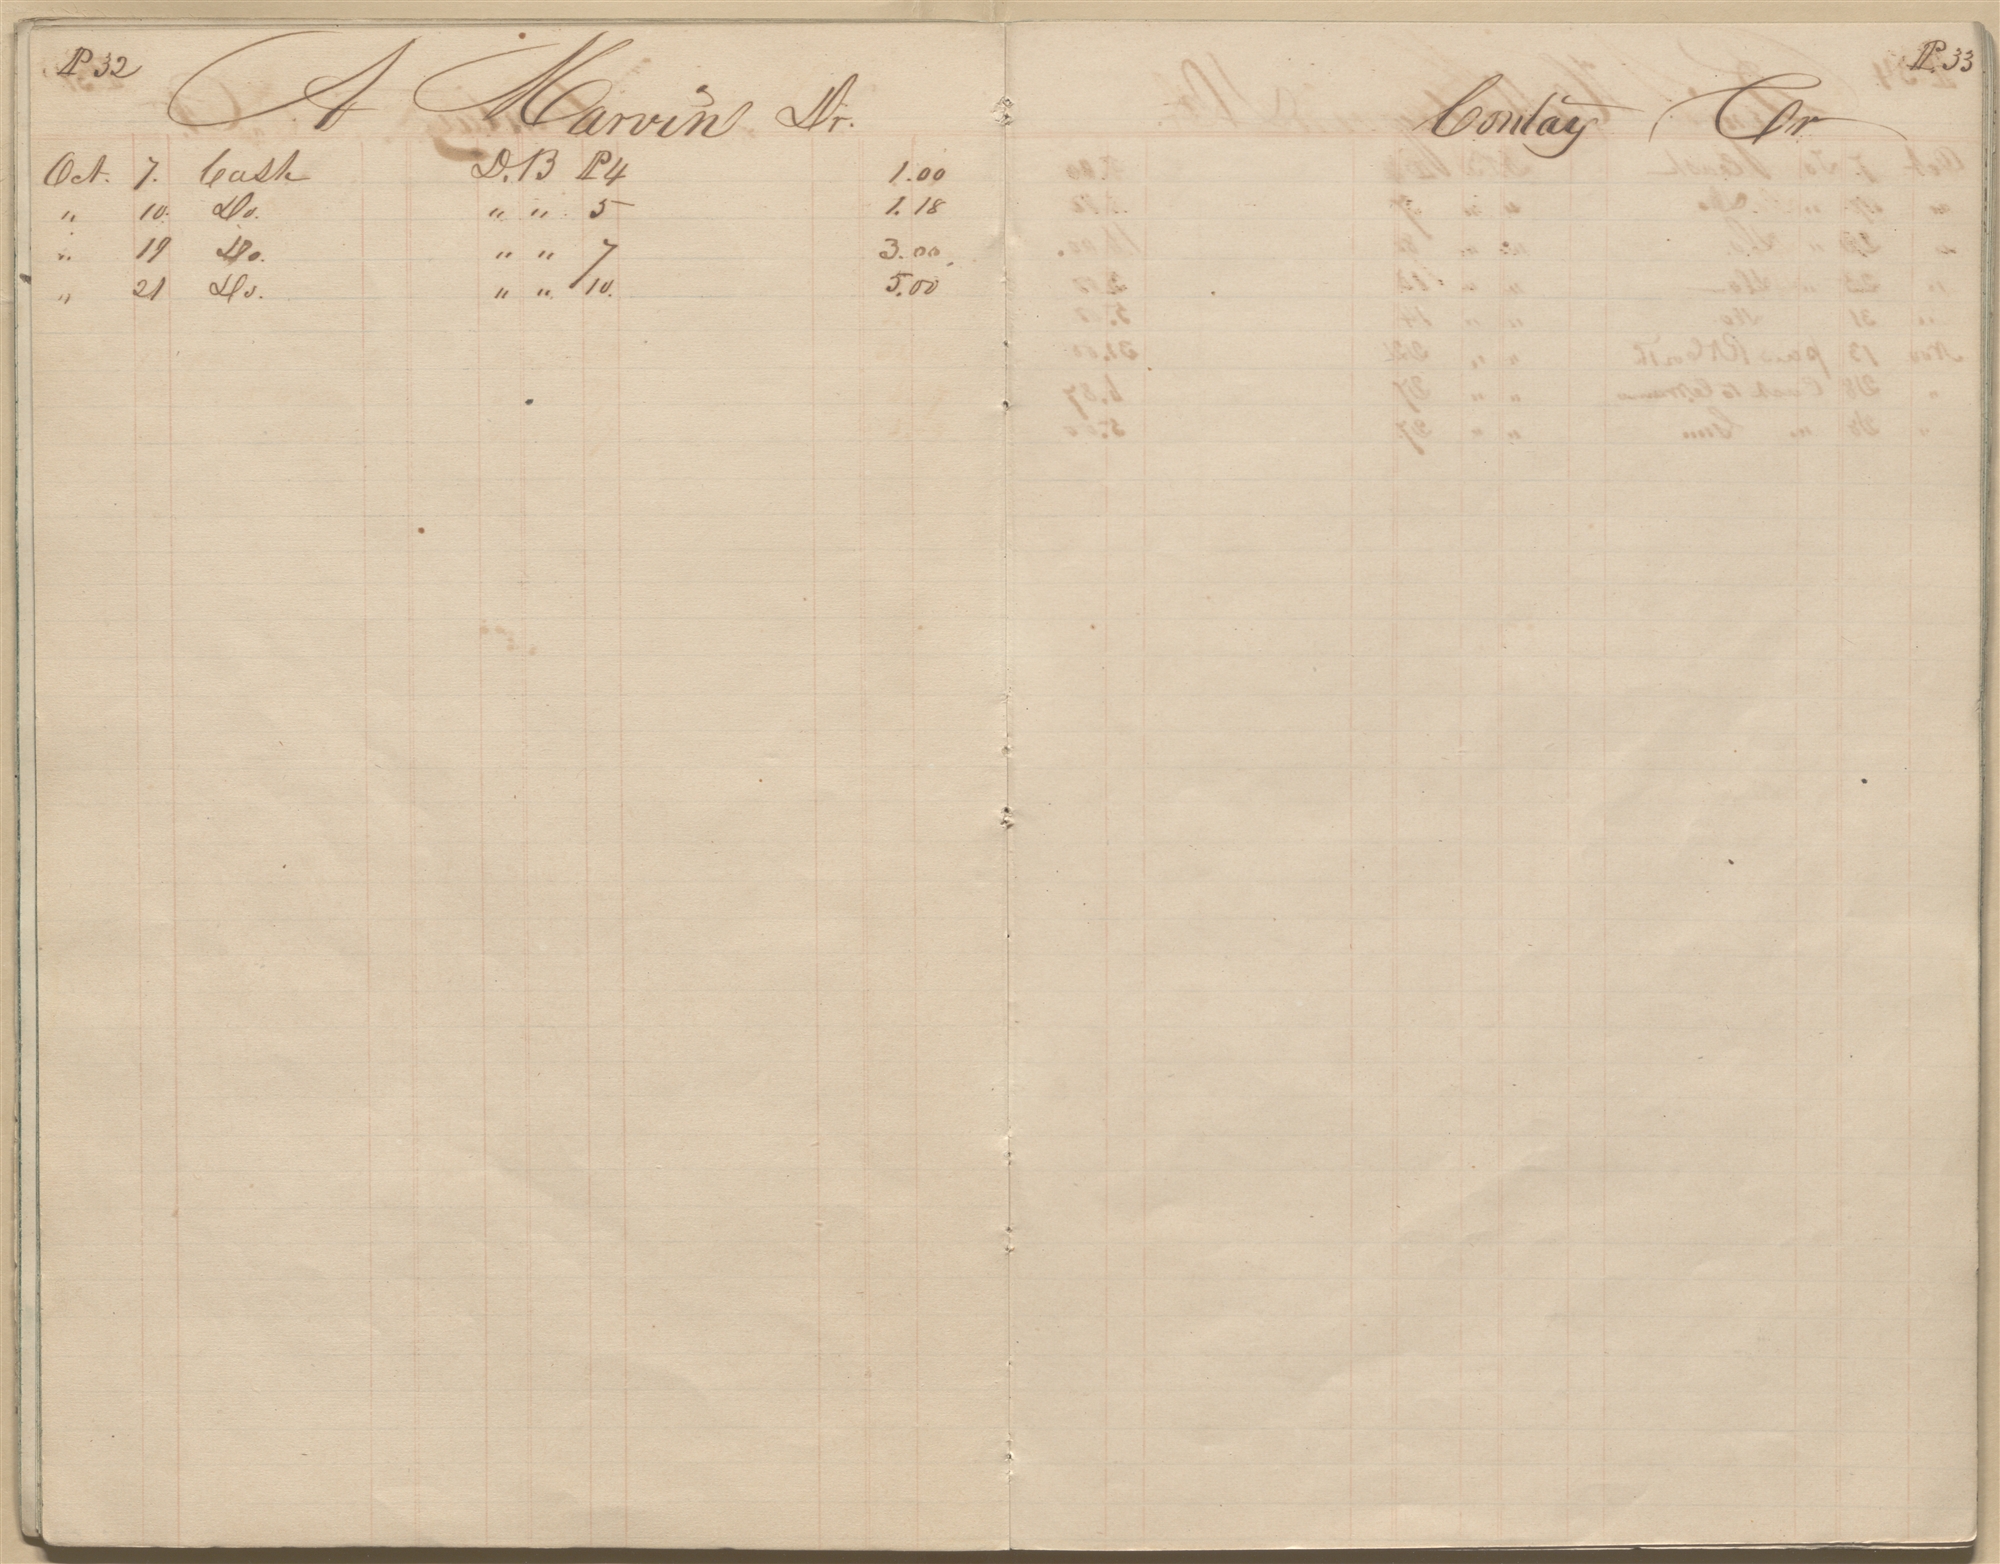 P 32
A Marvin Dr.
Oct. 7. Cash D.B P4 1.00
" 10. Do. " " 5 1.18
" 19 Do. " " 7 3.00.
" 21 Do. " " 10. 5.00
P. 33
Contay Cr